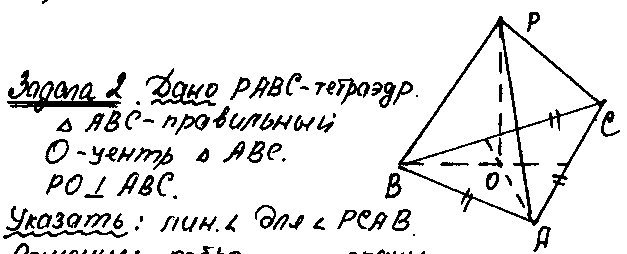 Задача 2. Дано PABC-тетраэдр.
△ ABC-правильный
O-центр △ ABC.
PO⊥ ABC.
Указать: лин.∠ для ∠ PCAB.
P
C
B
O
A